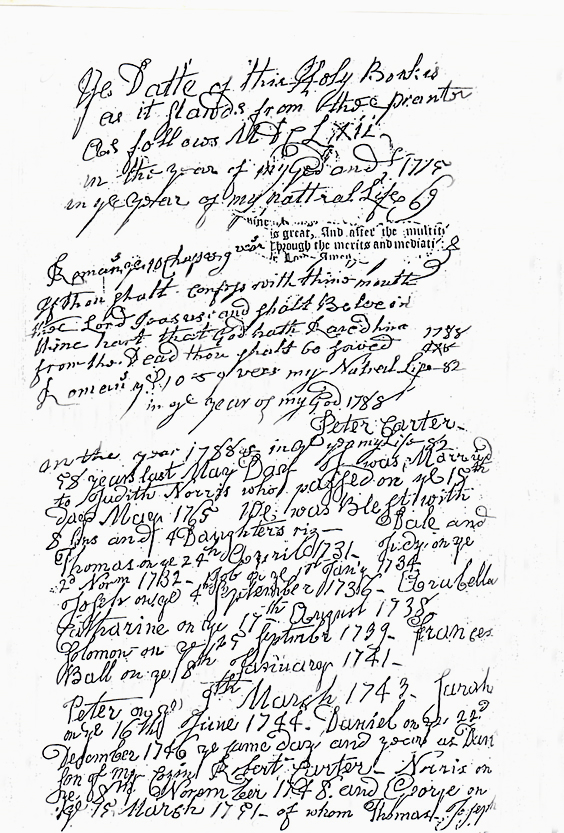 Ye Datte of this Holy Book is
as it stands from the prantor
as follows M D C L XII
in the year of my God and 1775
in ye year of my nattral Life 69
is great, And after the multit
through the merits and mediati
Amen
Romans ye 10 Chap ye 9 vers
If thou shalt confess with thine mouth
the Lord Jeasus and shalt Beleve in
thine hart that God hath Raised him
from the Dead thou shalt be saved 1788
Romans ye 10 = 9 vers my Natral Life - 82
in ye year of my God 1788
Peter Carter
in the year 1788 as in ye my Life 82
58 years last May Day I was Married
to Judith Norris who passed on ye 15th
day May 1765 We was Blest with
8 sons and 4 Daughters viz - Dale and
Thomas on ye 24th Aperil 1731 - Judy on ye
2d Norm 1732 - Job on ye 1st Jany 1734
Joseph on ye 4th September 1736 - Arabella
Catharine on ye 17th August 1738
Solomon on ye 25 Septmbr 1739 - Frances
Ball on ye 18th of Januarary 1741 -
Peter on ye 9th March 1743 - Sarah
on ye 16th June 1744 - Daniel on ye 22d
December 1746 ye same day and year as Dan
son of my Robert Carter - Norris on
ye 8th November 1748 and George on
ye 15 March 1751 - of whom Thomas Joseph